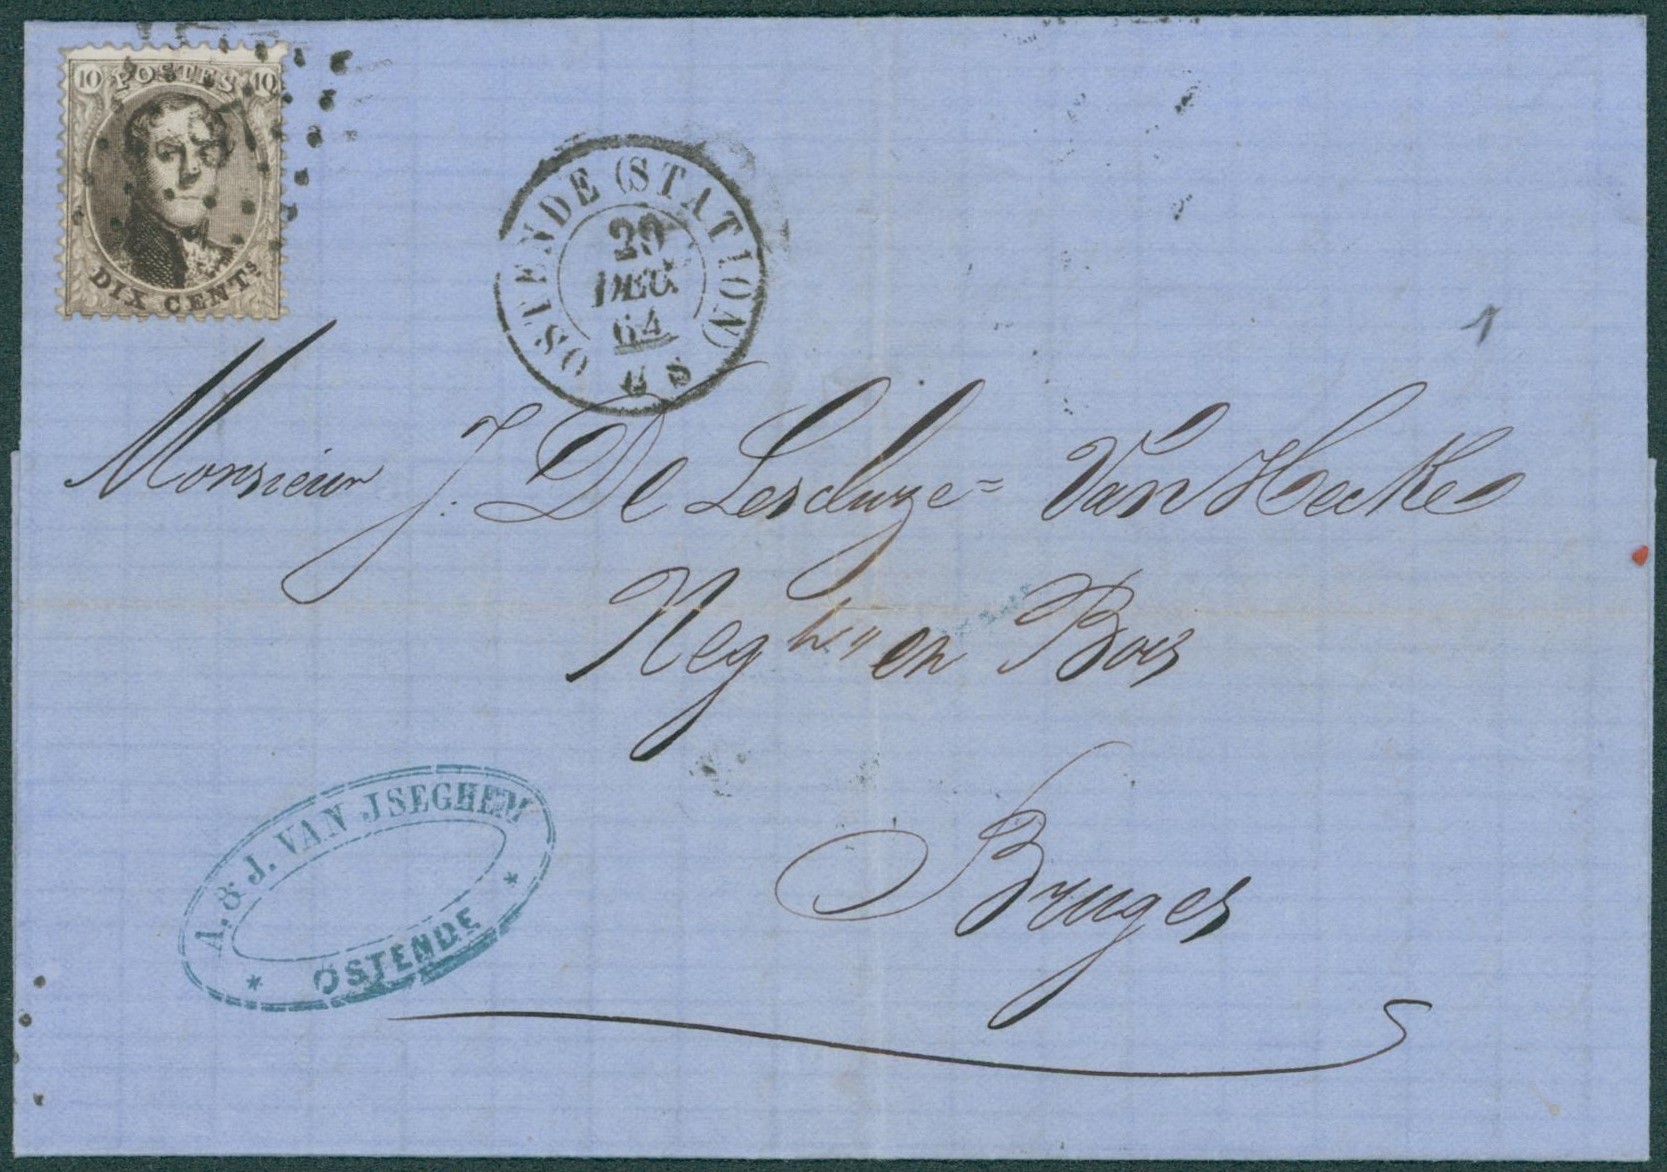 10 POSTES 10
DIX CENTS
OSTENDE (STATION)
29
DEC.
64
6 S
1
Monsieur J. De Lescluze = Van Hecke
Negt en Bois
Bruges
A. & J. VAN JSEGHEM
* OSTENDE *